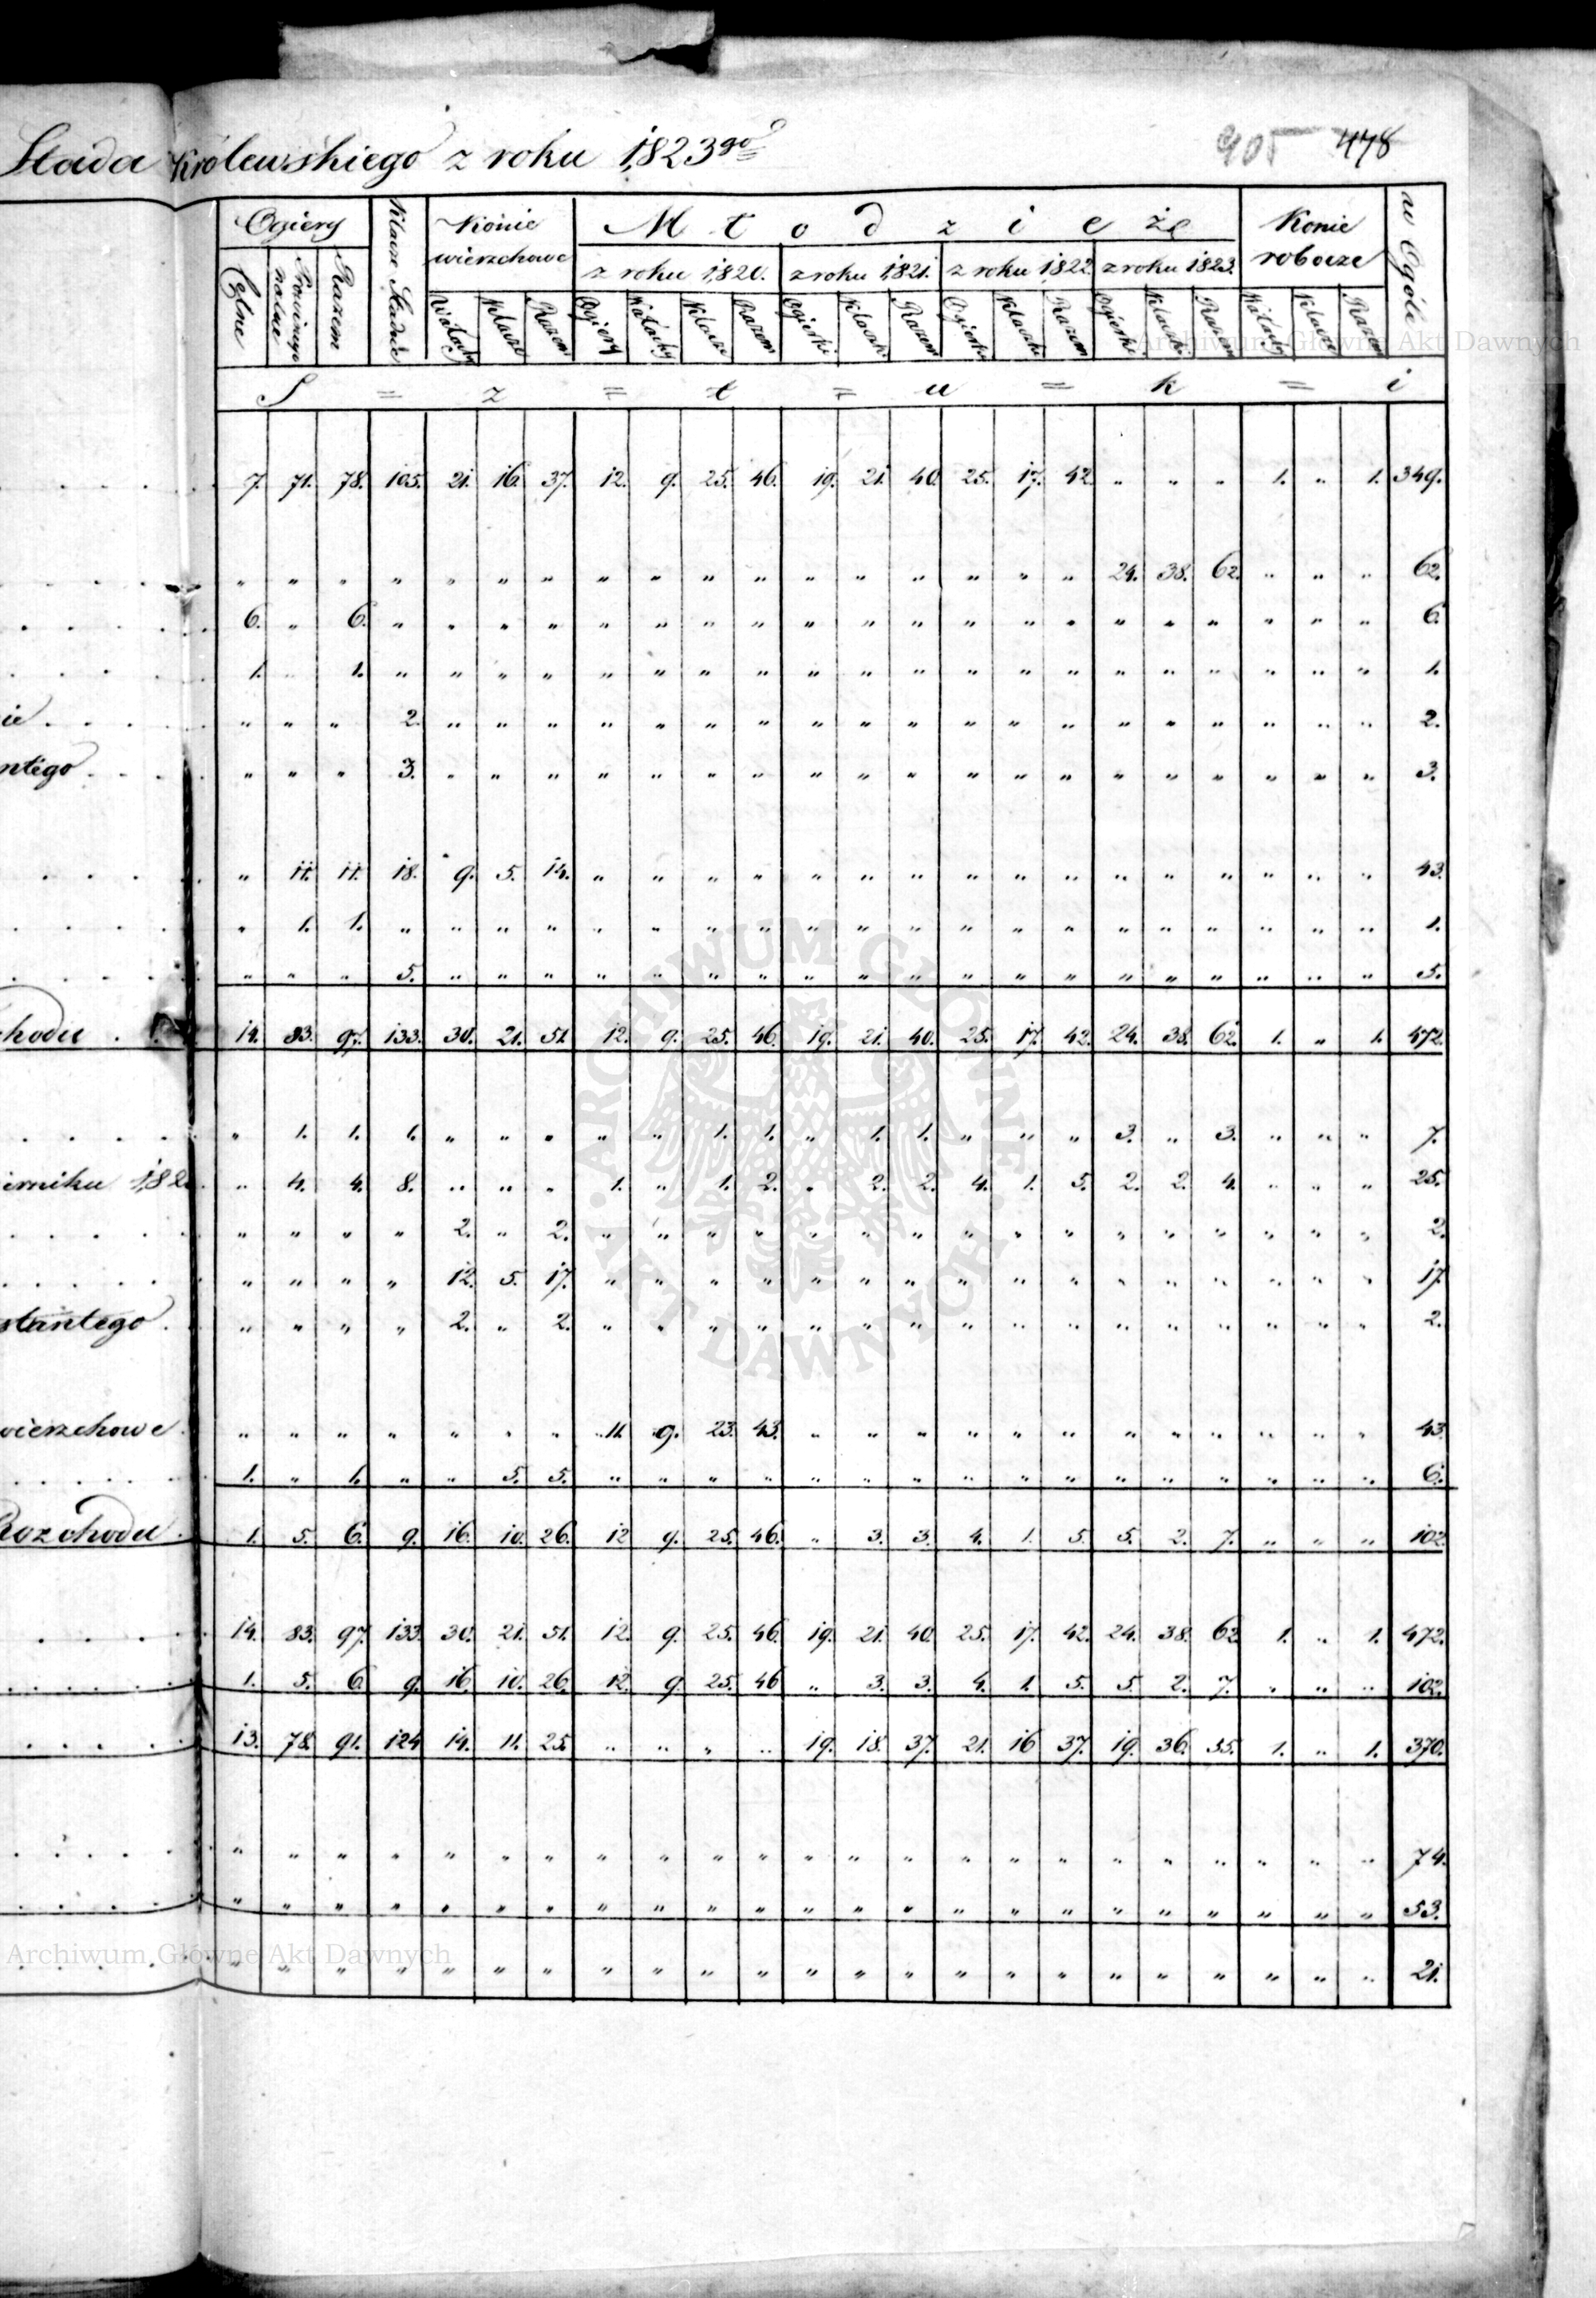 Stada Królewskiego z roku 1823go
905 478
Ogiery Klacze Stadne Konie wierzchowe Młodzież Konie robocze w Ogóle
z roku 1820. z roku 1821. z roku 1822. z roku 1823.
Czołne Prowincyonalne Razem Wałachy Klacze Razem Ogiery Wałachy Klacze Razem Ogierki Klaczki Razem Ogierki Klaczki Razem Ogierki Klaczki Razem Wałachy Klacze Razem
S = z = t = u = k = i
7. 71. 78. 105. 21. 16. 37. 12. 9. 25. 46. 19. 21. 40. 25. 17. 42. " " " 1. " 1. 349.
" " " " " " " " " " " " " " " " " 24. 38. 62. " " " 62.
6. " 6. " " " " " " " " " " " " " " " " " " " " 6.
1. " 1. " " " " " " " " " " " " " " " " " " " " 1.
ie " " " 2. " " " " " " " " " " " " " " " " " " " 2.
ntego " " " 3. " " " " " " " " " " " " " " " " " " " 3.
" 11. 11. 18. 9. 5. 14. " " " " " " " " " " " " " " " " 43.
" 1. 1. " " " " " " " " " " " " " " " " " " " " 1.
" " " 5. " " " " " " " " " " " " " " " " " " " 5.
chodu 14. 83. 97. 133. 30. 21. 51. 12. 9. 25. 46. 19. 21. 40. 25. 17. 42. 24. 38. 62. 1. " 1. 472.
" 1. 1. 1. " " " " " 1. 1. " 1. 1. " " " 3. " 3. " " " 7.
ierniku 182 " 4. 4. 8. " " " 1. " 1. 2. " 2. 2. 4. 1. 5. 2. 2. 4. " " " 25.
" " " " 2. " 2. " " " " " " " " " " " " " " " " 2.
" " " " 12. 5. 17. " " " " " " " " " " " " " " " " 17.
stantego " " " " 2. " 2. " " " " " " " " " " " " " " " " 2.
wierzchowe " " " " " " " 11. 9. 23. 43. " " " " " " " " " " " " 43.
1. " 1. " " 5. 5. " " " " " " " " " " " " " " " " 6.
Rozchodu 1. 5. 6. 9. 16. 10. 26. 12 9. 25. 46. " 3. 3. 4. 1. 5. 5. 2. 7. " " " 102.
14. 83. 97. 133. 30. 21. 51. 12. 9. 25. 46. 19. 21. 40. 25. 17. 42. 24. 38. 62 1. " 1. 472.
1. 5. 6. 9. 16. 10. 26. 12. 9. 25. 46 " 3. 3. 4. 1. 5. 5. 2. 7. " " " 102.
13. 78. 91. 124 14. 11. 25. " " " " 19. 18. 37. 21. 16 37. 19. 36. 55. 1. " 1. 370.
" " " " " " " " " " " " " " " " " " " " " " " 74.
" " " " " " " " " " " " " " " " " " " " " " " 53.
" " " " " " " " " " " " " " " " " " " " " " " 21.
Archiwum Główne Akt Dawnych
ARCHIWUM GŁÓWNE AKT DAWNYCH
Archiwum Główne Akt Dawnych